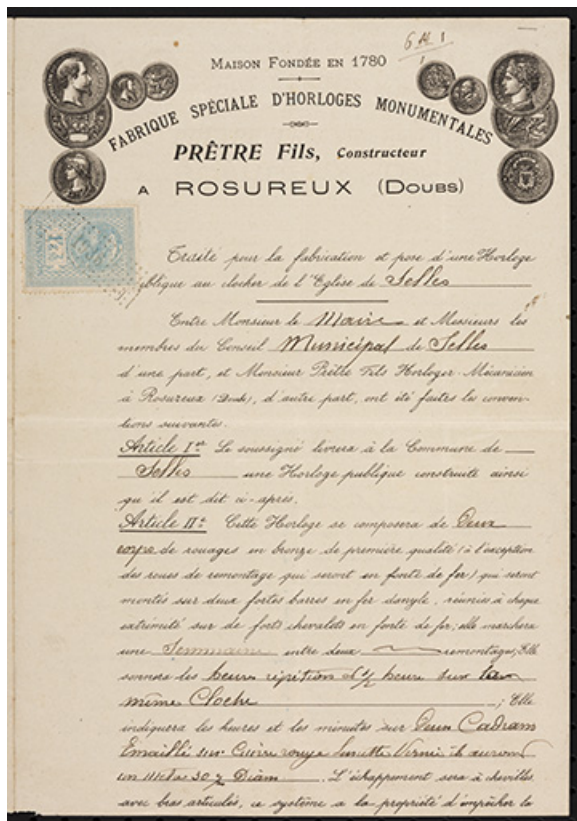 6 M 1
MAISON FONDÉE EN 1780
FABRIQUE SPÉCIALE D'HORLOGES MONUMENTALES
PRÊTRE Fils, Constructeur
A ROSUREUX (DOUBS)
Traité pour la fabrication et pose d'une Horloge
publique au clocher de l'Eglise de Selles
Entre Monsieur le Maire et Messieurs les
membres du Conseil Municipal de Selles
d'une part, et Monsieur Prêtre Fils Horloger-Mécanicien
à Rosureux (Doubs), d'autre part, ont été faites les conven-
tions suivantes.
Article Ier Le soussigné livrera à la Commune de
Selles une Horloge publique construite ainsi
qu'il est dit ci-après.
Article II: Cette Horloge se composera de Deux
corps de rouages en bronze de première qualité (à l'exception
des roues de remontage qui seront en fonte de fer) qui seront
montés sur deux fortes barres en fer d'angle, réunies à chaque
extrémité sur de forts chevalets en fonte de fer; elle marchera
une Semmaine entre deux remontages; Elle
sonnera les heures répétition d ½ heure sur la
même Cloche ; Elle
indiquera les heures et les minutes sur Deux Cadrans
Emaillé sur Cuivre rouge Lunette Verni ils auront
un Mètre 30 % Diam . L'échappement sera à chevilles
avec bras articulés, ce système a la propriété d'empêcher la